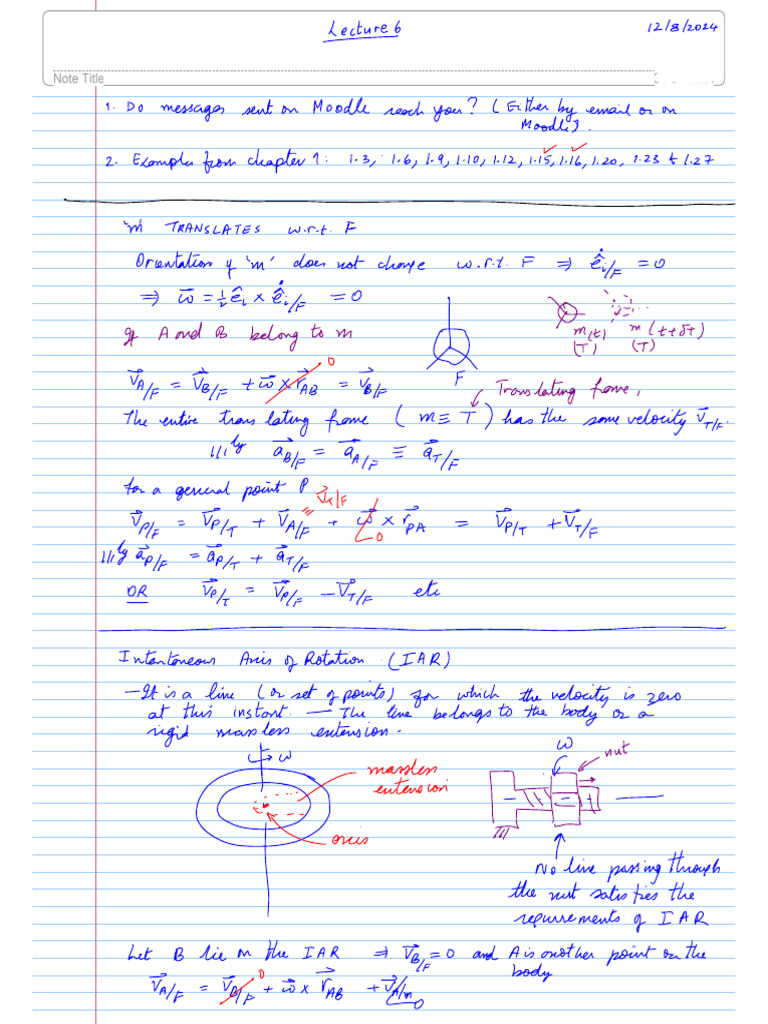 Lecture 6
12/8/2024
Note Title
1. Do messages sent on Moodle reach you? (Either by email or on
Moodle).
2. Examples from chapter 1: 1.3, 1.6, 1.9, 1.10, 1.12, 1.15, 1.16, 1.20, 1.23 & 1.27
'm' TRANSLATES w.r.t. F
Orientation of 'm' does not change w.r.t. F ⇒ ė̂ᵢ/F = 0
⇒ ω⃗ = ½ êᵢ × ė̂ᵢ/F = 0
If A and B belong to m
m(t) m(t+δt)
(T) (T)
F
V⃗A/F = V⃗B/F + ω⃗ × r⃗AB 0 = V⃗B/F
Translating frame,
The entire translating frame (m ≡ T) has the same velocity V⃗T/F.
|||ly a⃗B/F = a⃗A/F ≡ a⃗T/F
for a general point P
V⃗T/F
V⃗P/F = V⃗P/T + V⃗A/F + ω⃗ × r⃗PA = V⃗P/T + V⃗T/F
0
|||ly a⃗P/F = a⃗P/T + a⃗T/F
OR V⃗P/T = V⃗P/F − V⃗T/F etc
Intantaneous Axis of Rotation (IAR)
– It is a line (or set of points) for which the velocity is zero
at this instant. — The line belongs to the body or a
rigid massless extension.
ω
massless
extension
axis
ω
nut
No line passing through
the nut satisfies the
requirements of IAR
Let B lie on the IAR ⇒ V⃗B/F = 0 and A is another point on the
body
V⃗A/F = V⃗B/F 0 + ω⃗ × r⃗AB + V⃗A/m 0